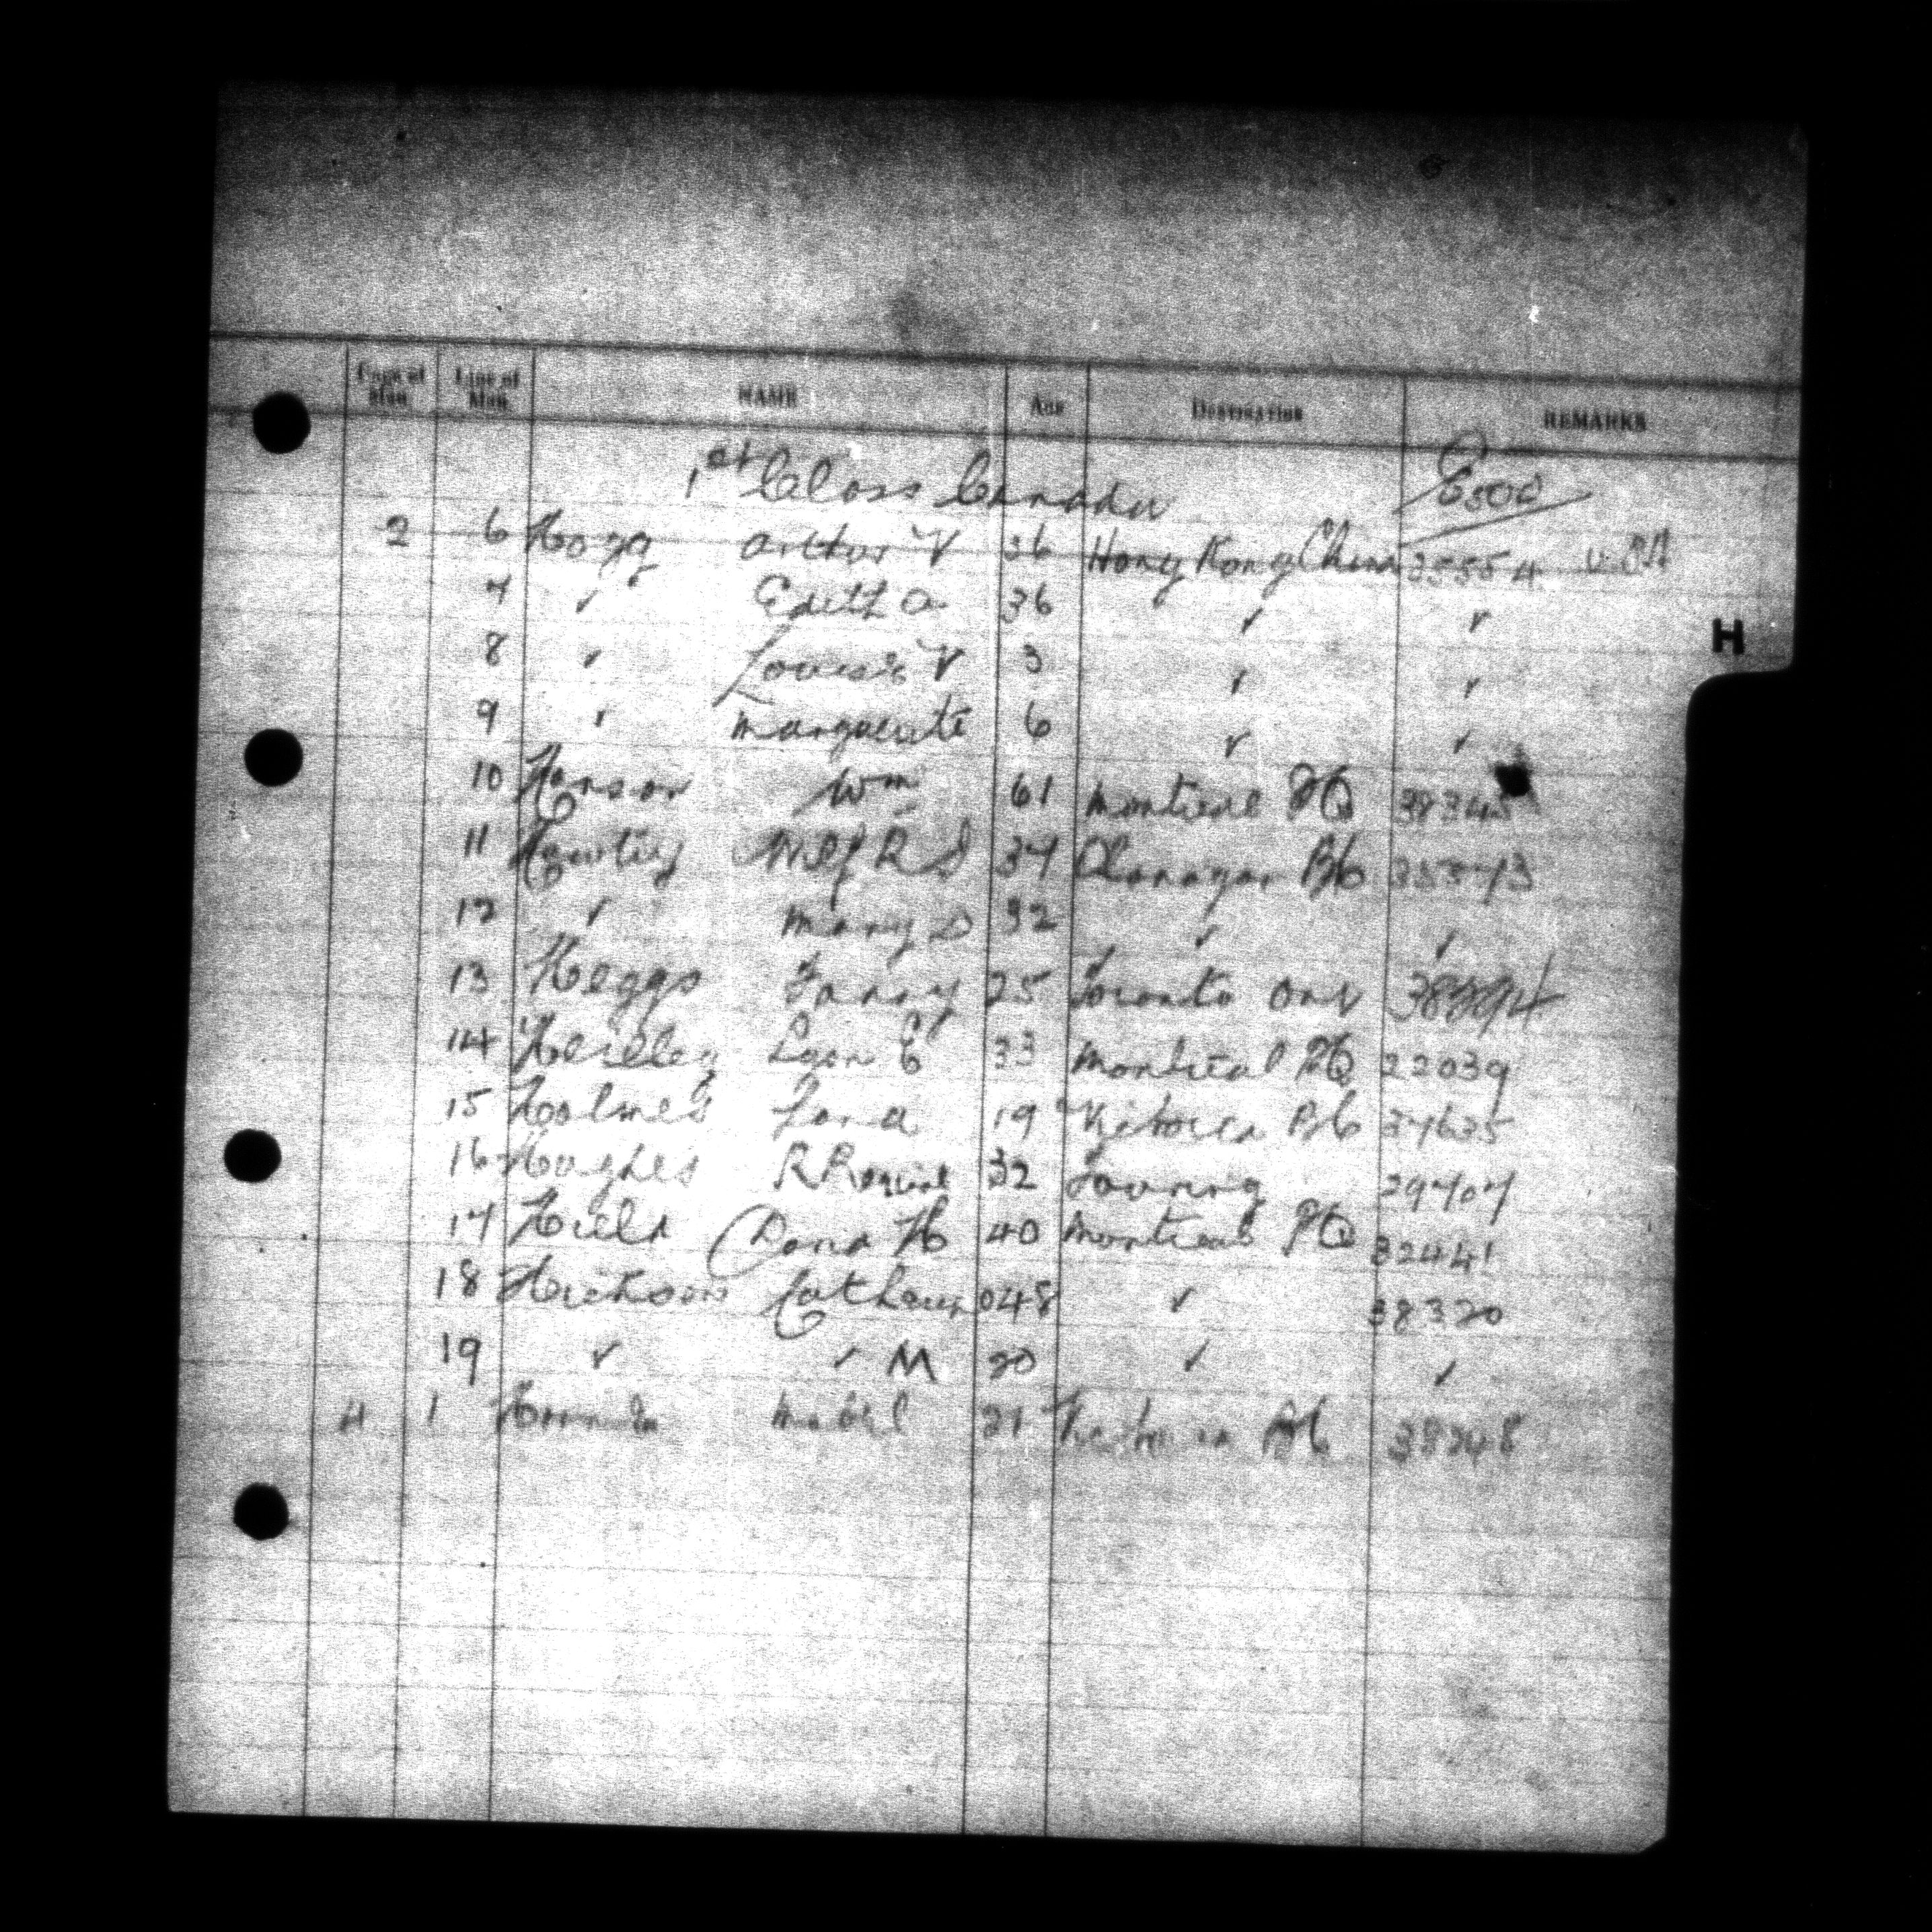 Page of Man. Line of Man. NAME Age Destination REMARKS
1st Class Canada
2 6 Hogg Arthur V 36 Hong Kong China 35554
7 ✓ Edith A 36 ✓ ✓
8 ✓ Louise V 3 ✓ ✓
9 ✓ Marguerite 6 ✓ ✓
H
10 Hanson Wm 61 Montreal PQ 38345
11 R S 37 BC 35573
12 ✓ Mary S 32 ✓ ✓
13 Heggs Fanny 25 Toronto Ont
14 Leon E 33 Montreal PQ 22039
15 Holmes 19 Victoria BC 37635
16 Hughes R 32 Touring 29707
17 H 40 Montreal PQ 32441
18 Hickson 48 ✓ 38320
19 ✓ ✓ M 20 ✓ ✓
4 1 Mabel 21 Victoria BC 38248